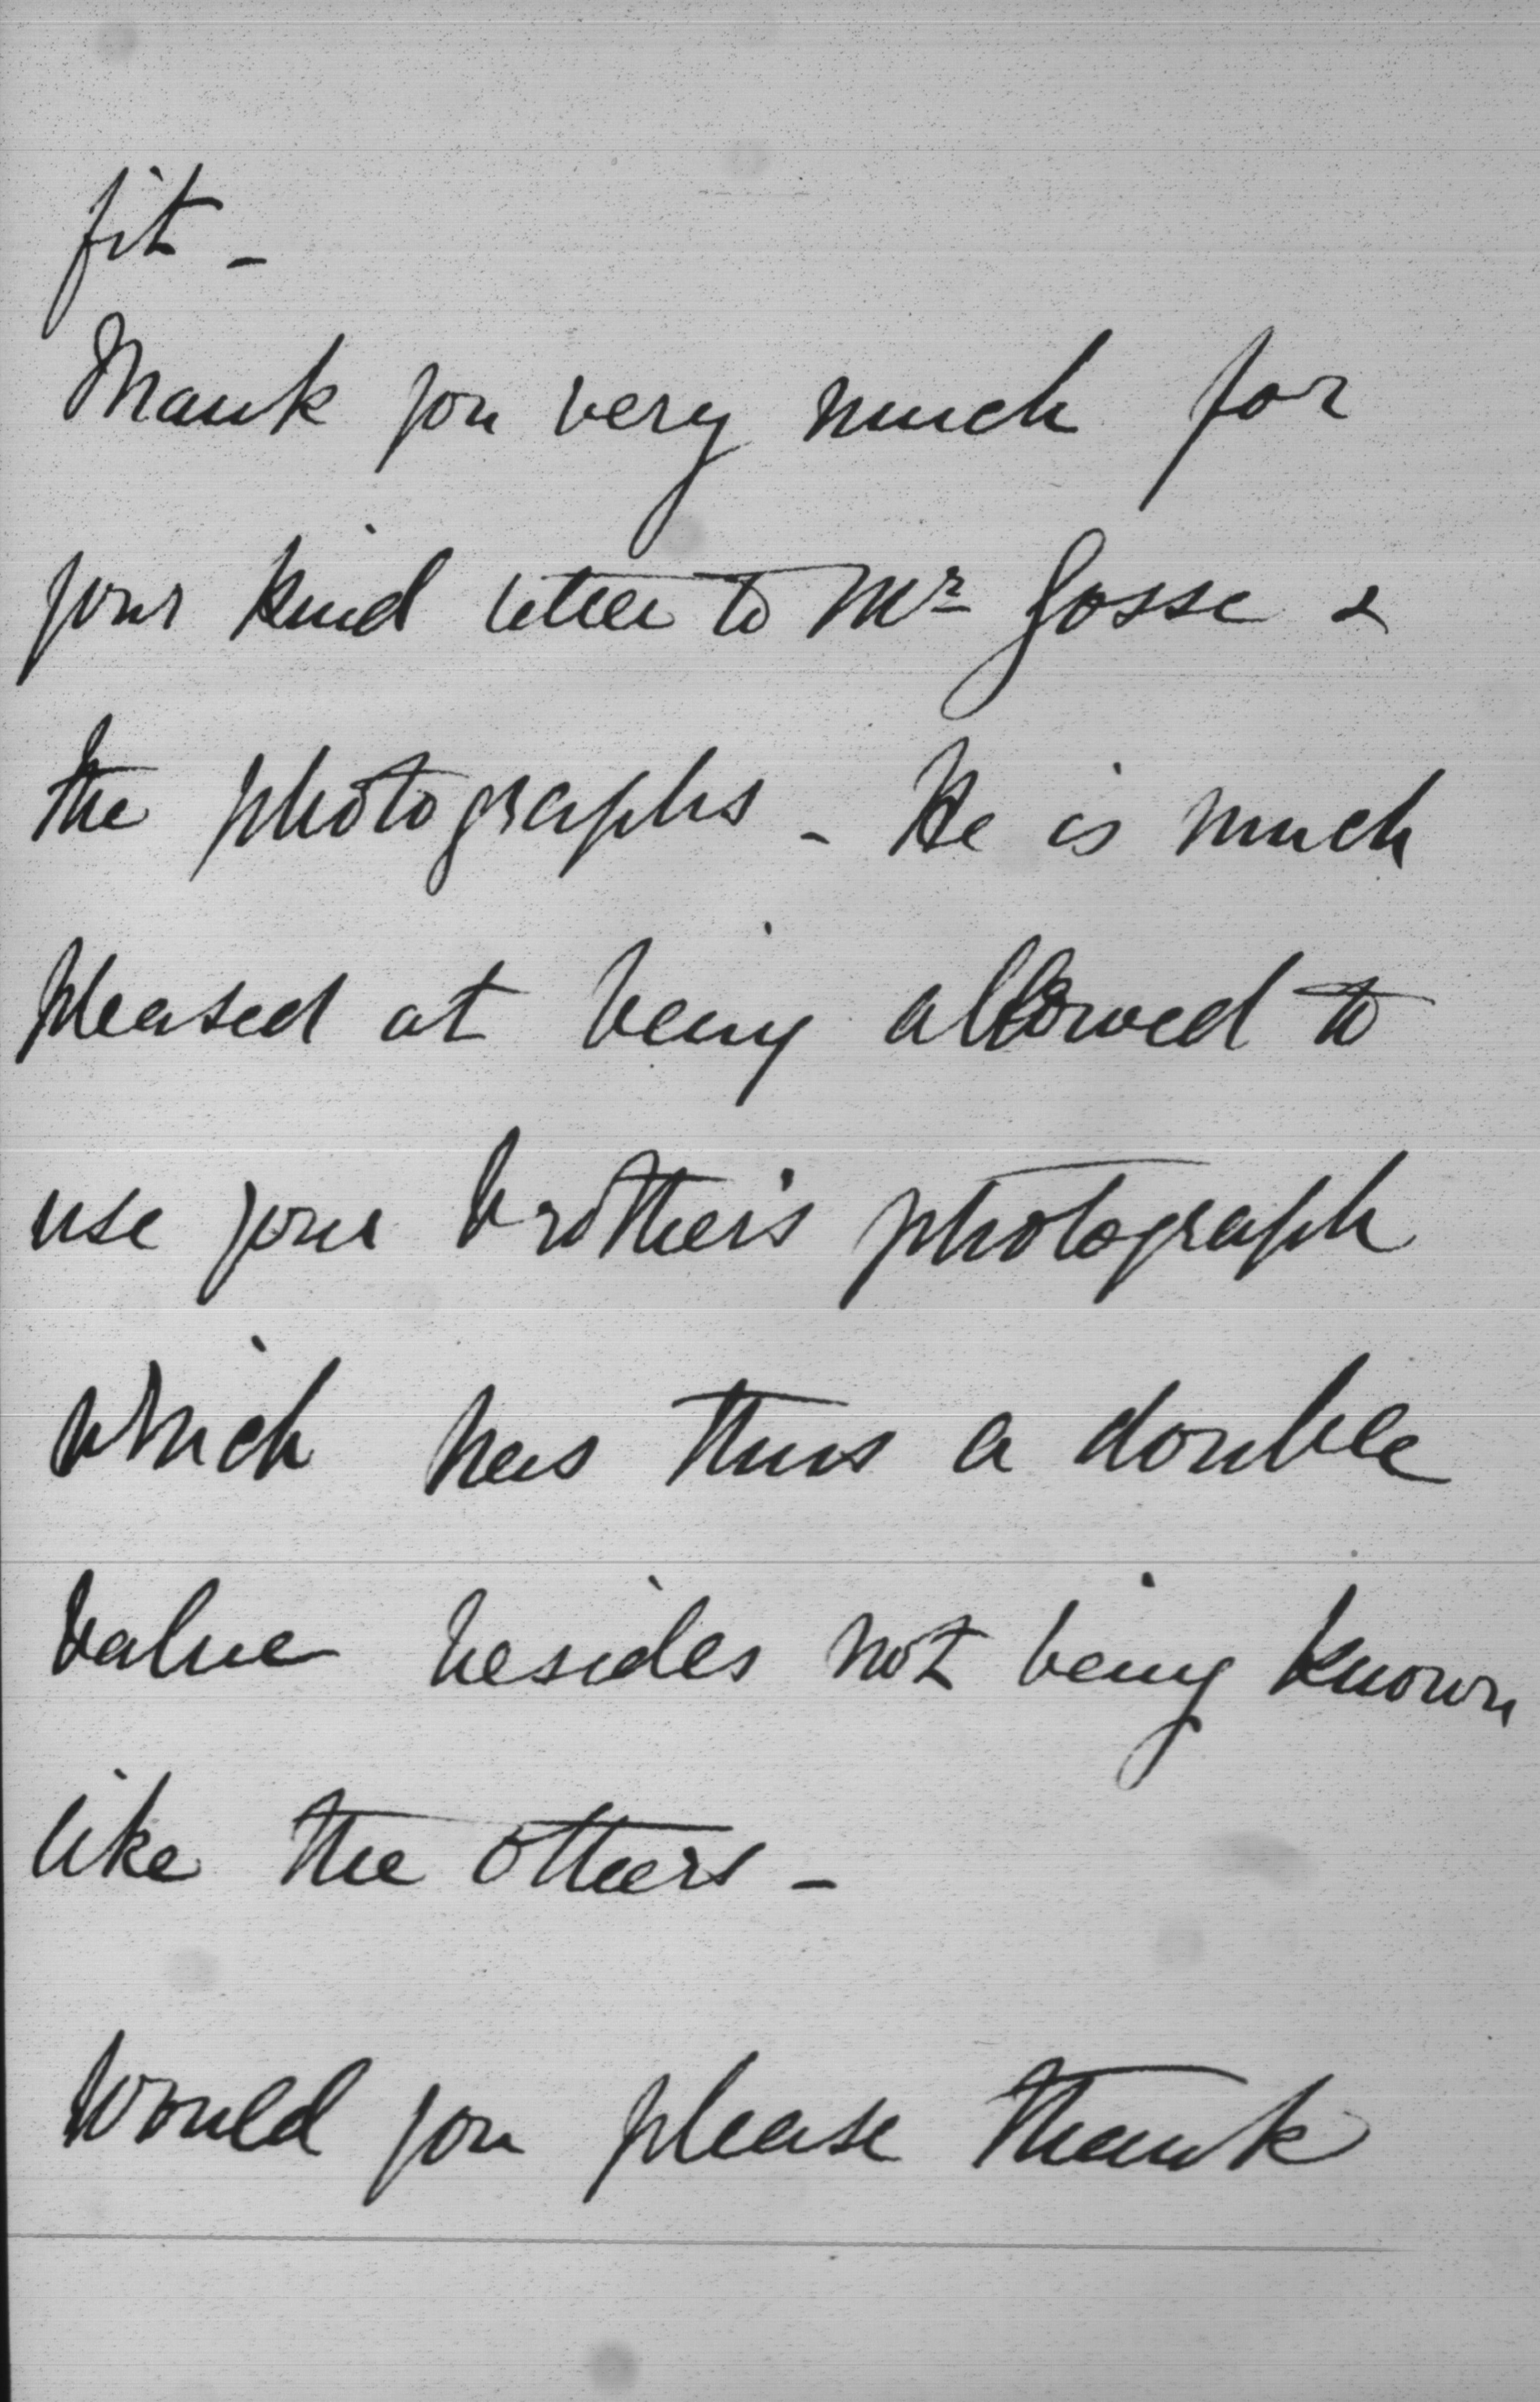 fit -
Thank you very much for
your kind letter to Mr Gosse &
the photographs - He is much
pleased at being allowed to
use your brother's photograph
which has thus a double
value besides not being known
like the others -
Would you please thank